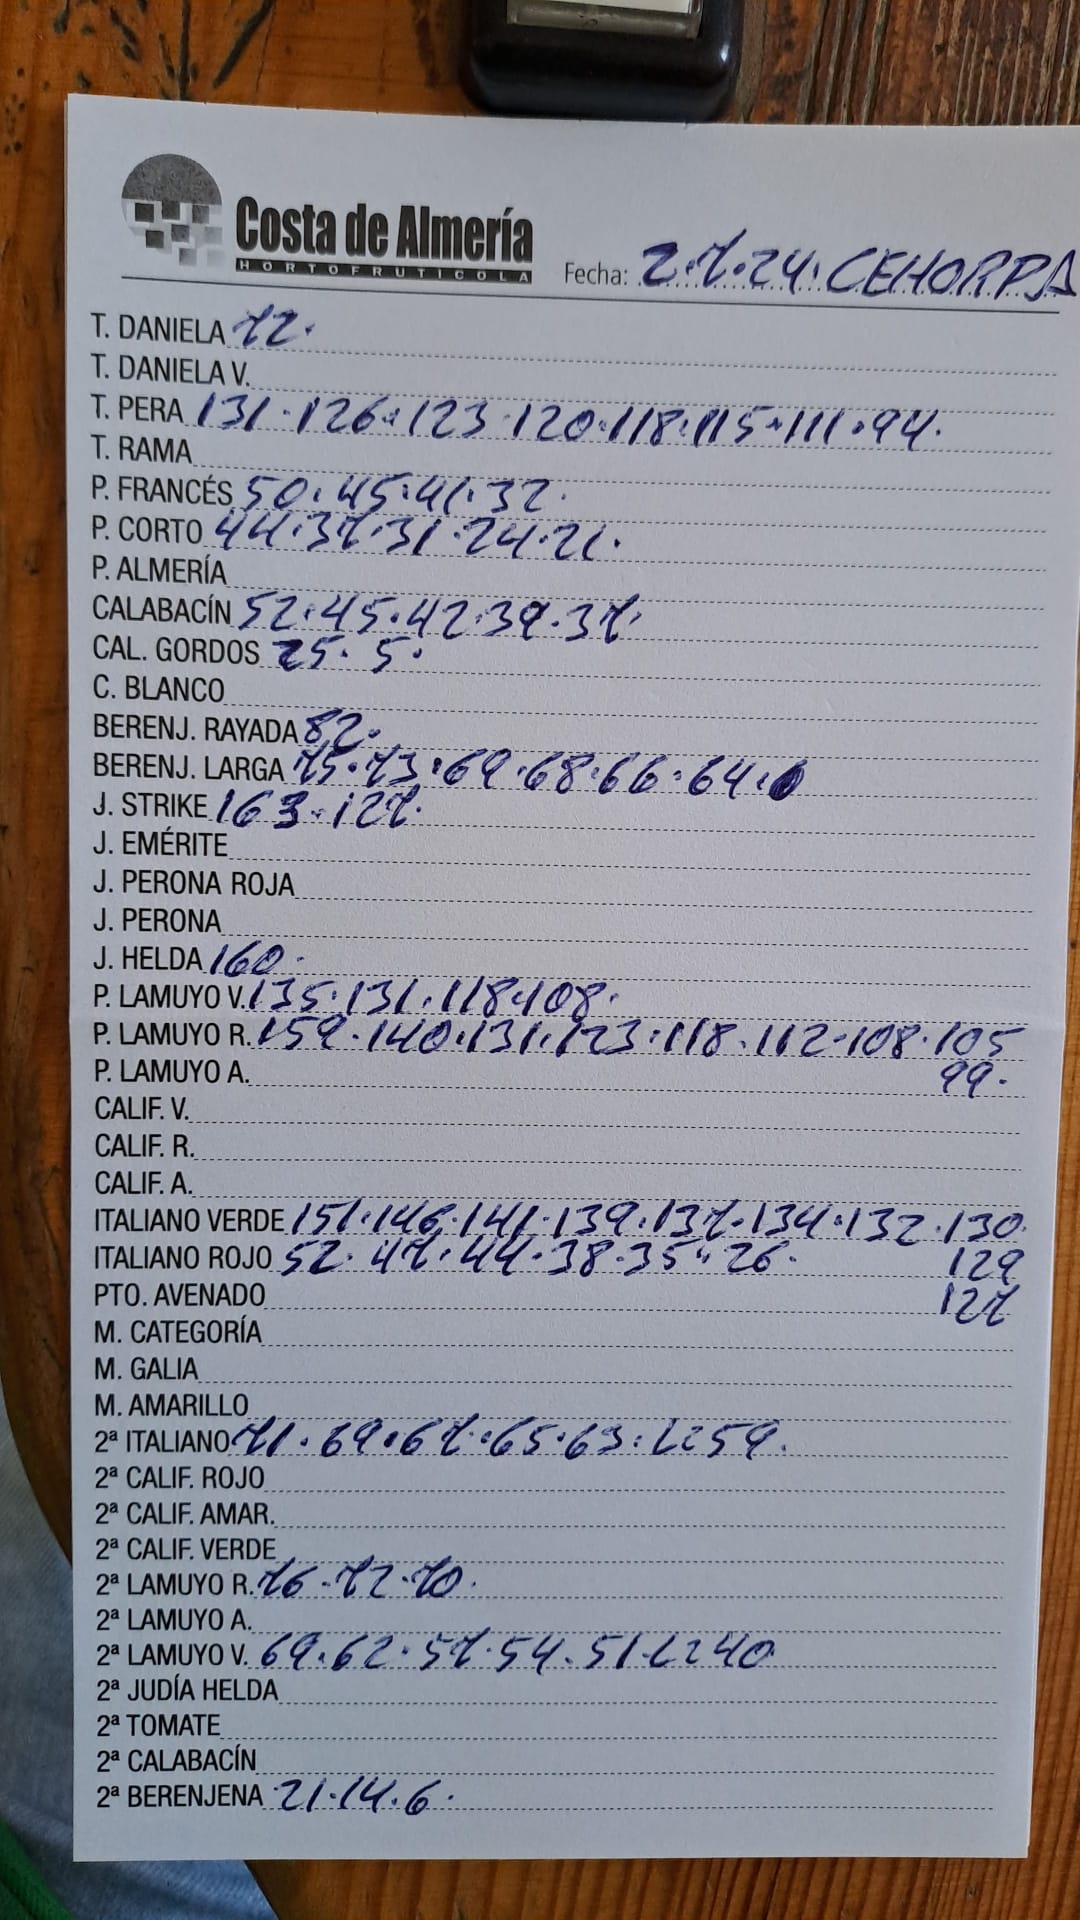 Costa de Almería
HORTOFRUTICOLA
Fecha: 2.7.24. CEHORPA
T. DANIELA 72.
T. DANIELA V.
T. PERA 131.126.123.120.118.115.111.94.
T. RAMA
P. FRANCÉS 50.45.41.32.
P. CORTO 44.37.31.24.21.
P. ALMERÍA
CALABACÍN 52.45.42.39.37.
CAL. GORDOS 25. 5.
C. BLANCO
BERENJ. RAYADA 82.
BERENJ. LARGA 75.73.69.68.66.64.
J. STRIKE 163.127.
J. EMÉRITE
J. PERONA ROJA
J. PERONA
J. HELDA 160.
P. LAMUYO V. 135.131.118.108.
P. LAMUYO R. 159.140.131.123.118.112.108.105
P. LAMUYO A. 99.
CALIF. V.
CALIF. R.
CALIF. A.
ITALIANO VERDE 151.146.141.139.137.134.132.130.
ITALIANO ROJO 52.47.44.38.35.26. 129
PTO. AVENADO 127
M. CATEGORÍA
M. GALIA
M. AMARILLO
2ª ITALIANO 71.69.67.65.63.L:59.
2ª CALIF. ROJO
2ª CALIF. AMAR.
2ª CALIF. VERDE
2ª LAMUYO R. 76.72.70.
2ª LAMUYO A.
2ª LAMUYO V. 69.62.57.54.51.L:40
2ª JUDÍA HELDA
2ª TOMATE
2ª CALABACÍN
2ª BERENJENA 21.14.6.